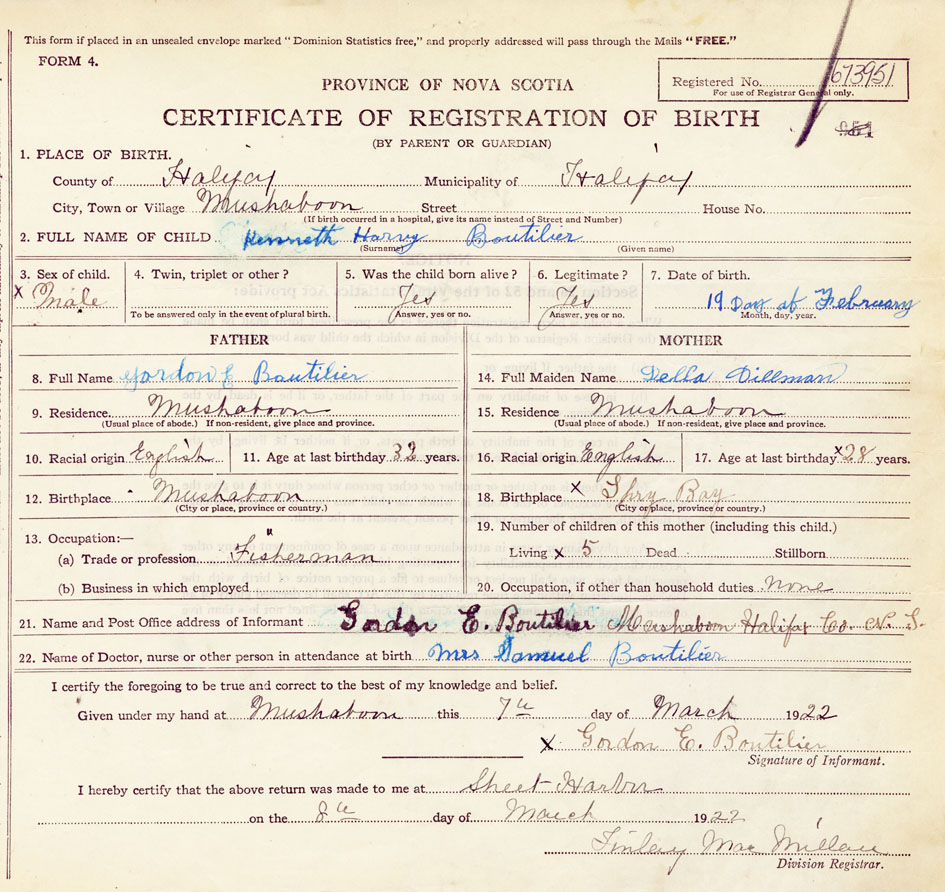 This form if placed in an unsealed envelope marked "Dominion Statistics free," and properly addressed will pass through the Mails "FREE."
FORM 4.
Registered No. 673951
For use of Registrar General only.
PROVINCE OF NOVA SCOTIA
CERTIFICATE OF REGISTRATION OF BIRTH
(BY PARENT OR GUARDIAN)
1. PLACE OF BIRTH.
County of Halifax Municipality of Halifax
City, Town or Village Mushaboon Street House No.
(If birth occurred in a hospital, give its name instead of Street and Number)
2. FULL NAME OF CHILD Kenneth Harvy Boutilier
(Surname) (Given name)
3. Sex of child. 4. Twin, triplet or other? 5. Was the child born alive? 6. Legitimate? 7. Date of birth.
x Male Yes Yes 19 Day of February
To be answered only in the event of plural birth. Answer, yes or no. Answer, yes or no. Month, day, year.
FATHER MOTHER
8. Full Name Gordon E Boutilier 14. Full Maiden Name Della Dillman
9. Residence Mushaboon 15. Residence Mushaboon
(Usual place of abode.) If non-resident, give place and province. (Usual place of abode.) If non-resident, give place and province.
10. Racial origin English 11. Age at last birthday 32 years. 16. Racial origin English 17. Age at last birthday x 28 years.
12. Birthplace Mushaboon 18. Birthplace x Spry Bay
(City or place, province or country.) (City or place, province or country.)
13. Occupation:— 19. Number of children of this mother (including this child.)
(a) Trade or profession Fisherman Living x 5 Dead Stillborn
(b) Business in which employed 20. Occupation, if other than household duties None
21. Name and Post Office address of Informant Gordon E. Boutilier Mushaboon Halifax Co. N. S.
22. Name of Doctor, nurse or other person in attendance at birth Mrs Samuel Boutilier
I certify the foregoing to be true and correct to the best of my knowledge and belief.
Given under my hand at Mushaboon this 7th day of March 1922
x Gordon E. Boutilier
Signature of Informant.
I hereby certify that the above return was made to me at Sheet Harbor
on the 8th day of March 1922
Finlay MacMillan
Division Registrar.